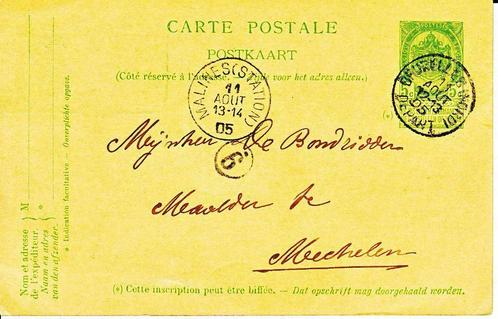 CARTE POSTALE
POSTKAART
(Côté réservé à l'adresse. — Zijde voor het adres alleen.)
MALINES (STATION)
11
AOUT
13-14
05
BRUXELLES (MIDI)
11
AOUT
12-13
05
DEPART
6
(*)
Mijnheer De Bondridder
te
Mechelen
(*) Cette inscription peut être biffée. — Dat opschrift mag doorgehaald worden.
M
Nom et adresse
de l'expéditeur.
Naam en adres
van den afzender.
* Indication facultative — Onverplichte opgave.